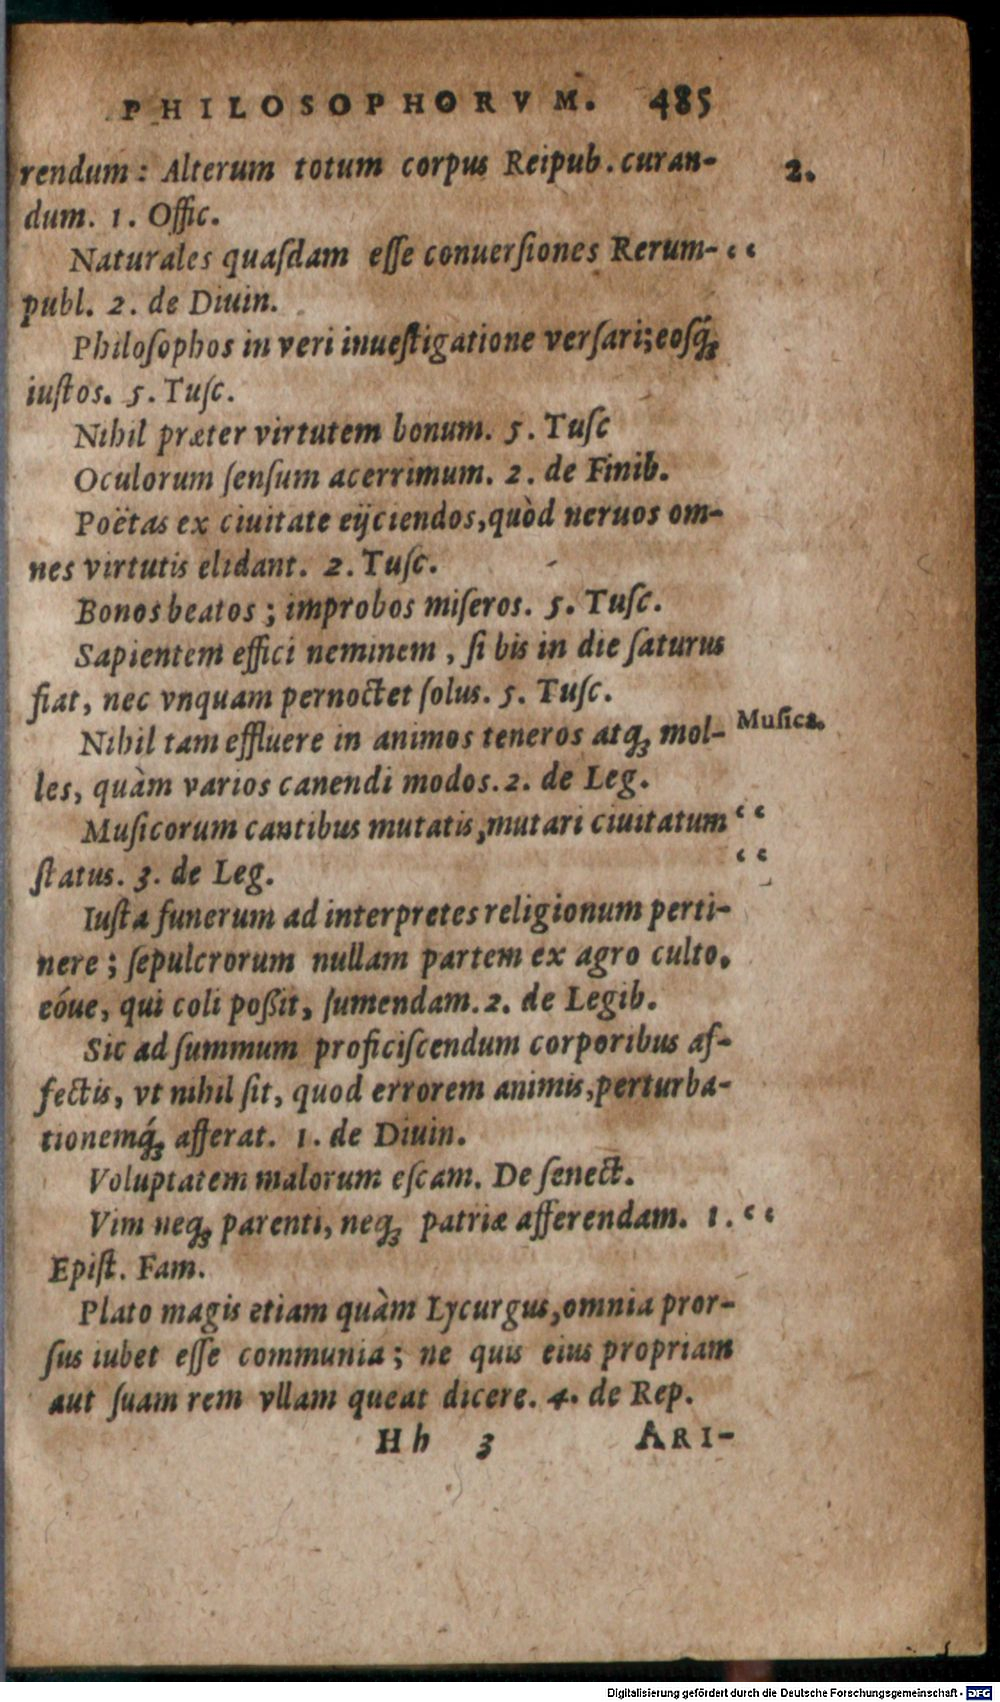 PHILOSOPHORVM. 485
rendum: Alterum totum corpus Reipub. curan- 2.
dum. 1. Offic.
Naturales quaſdam eſſe conuerſiones Rerum- ‘‘
publ. 2. de Diuin.
Philoſophos in veri inueſtigatione verſari; eoſq́ꝫ
iuſtos. 5. Tuſc.
Nihil præter virtutem bonum. 5. Tuſc
Oculorum ſenſum acerrimum. 2. de Finib.
Poëtas ex ciuitate eijciendos, quòd neruos om-
nes virtutis elidant. 2. Tuſc.
Bonos beatos; improbos miſeros. 5. Tuſc.
Sapientem effici neminem, ſi bis in die ſaturus
fiat, nec vnquam pernoctet ſolus. 5. Tuſc.
Nihil tam effluere in animos teneros atqꝫ mol- Muſica.
les, quàm varios canendi modos. 2. de Leg.
Muſicorum cantibus mutatis, mutari ciuitatum ‘‘
ſtatus. 3. de Leg. ‘‘
Iuſta funerum ad interpretes religionum perti-
nere; ſepulcrorum nullam partem ex agro culto,
eóue, qui coli poßit, ſumendam. 2. de Legib.
Sic ad ſummum proficiſcendum corporibus af-
fectis, vt nihil ſit, quod errorem animis, perturba-
tionemq́ꝫ afferat. 1. de Diuin.
Voluptatem malorum eſcam. De ſenect.
Vim neqꝫ parenti, neqꝫ patriæ afferendam. 1. ‘‘
Epiſt. Fam.
Plato magis etiam quàm Lycurgus, omnia pror-
ſus iubet eſſe communia; ne quis eius propriam
aut ſuam rem vllam queat dicere. 4. de Rep.
Hh 3 ARI-
Digitalisierung gefördert durch die Deutsche Forschungsgemeinschaft - DFG